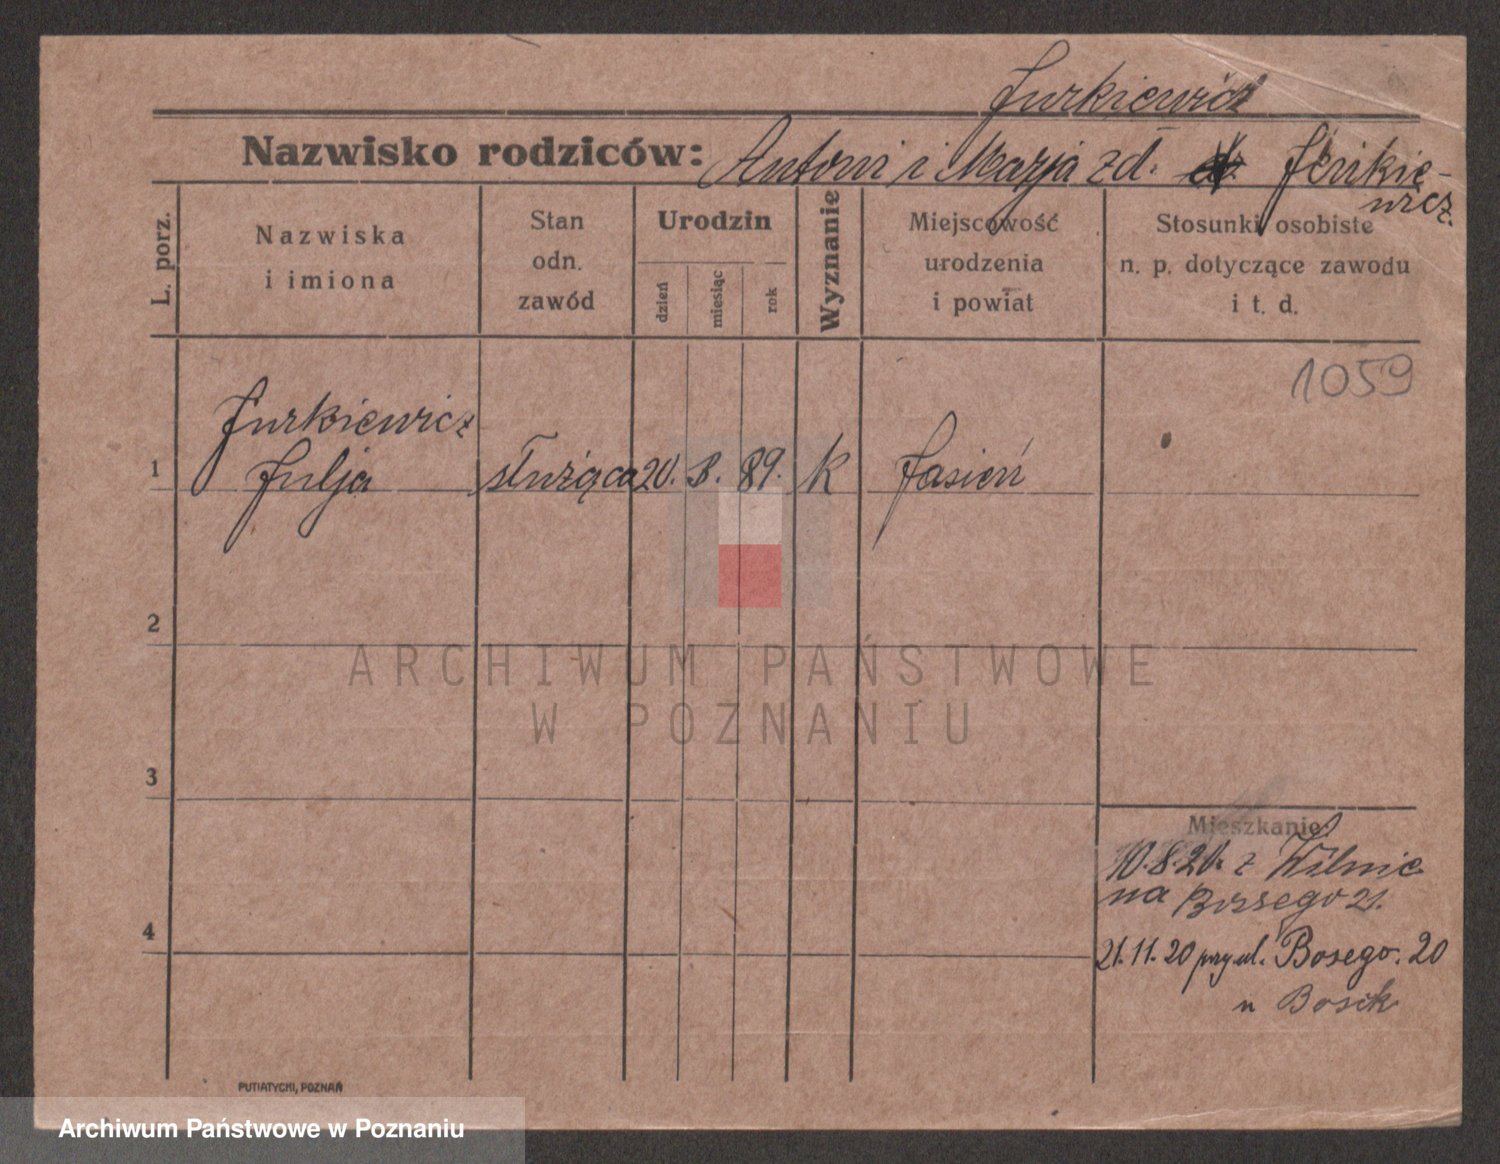 Jurkiewicz
Nazwisko rodziców: Antoni i Marja zd. Jenikie-
wicz
L. porz.
Nazwiska
i imiona
Stan
odn.
zawód
Urodzin
dzień
miesiąc
rok
Wyznanie
Miejscowość
urodzenia
i powiat
Stosunki osobiste
n. p. dotyczące zawodu
i t. d.
1059
Jurkiewicz
1 Julja służąca 20. 3. 89. k Jasień
2
ARCHIWUM PAŃSTWOWE
W POZNANIU
3
Mieszkanie
10.8.20. z Wilnie
na Bossego 21.
4
21.11.20 przy ul. Bosego. 20
u Bosek
PUTIATYCKI, POZNAŃ
Archiwum Państwowe w Poznaniu